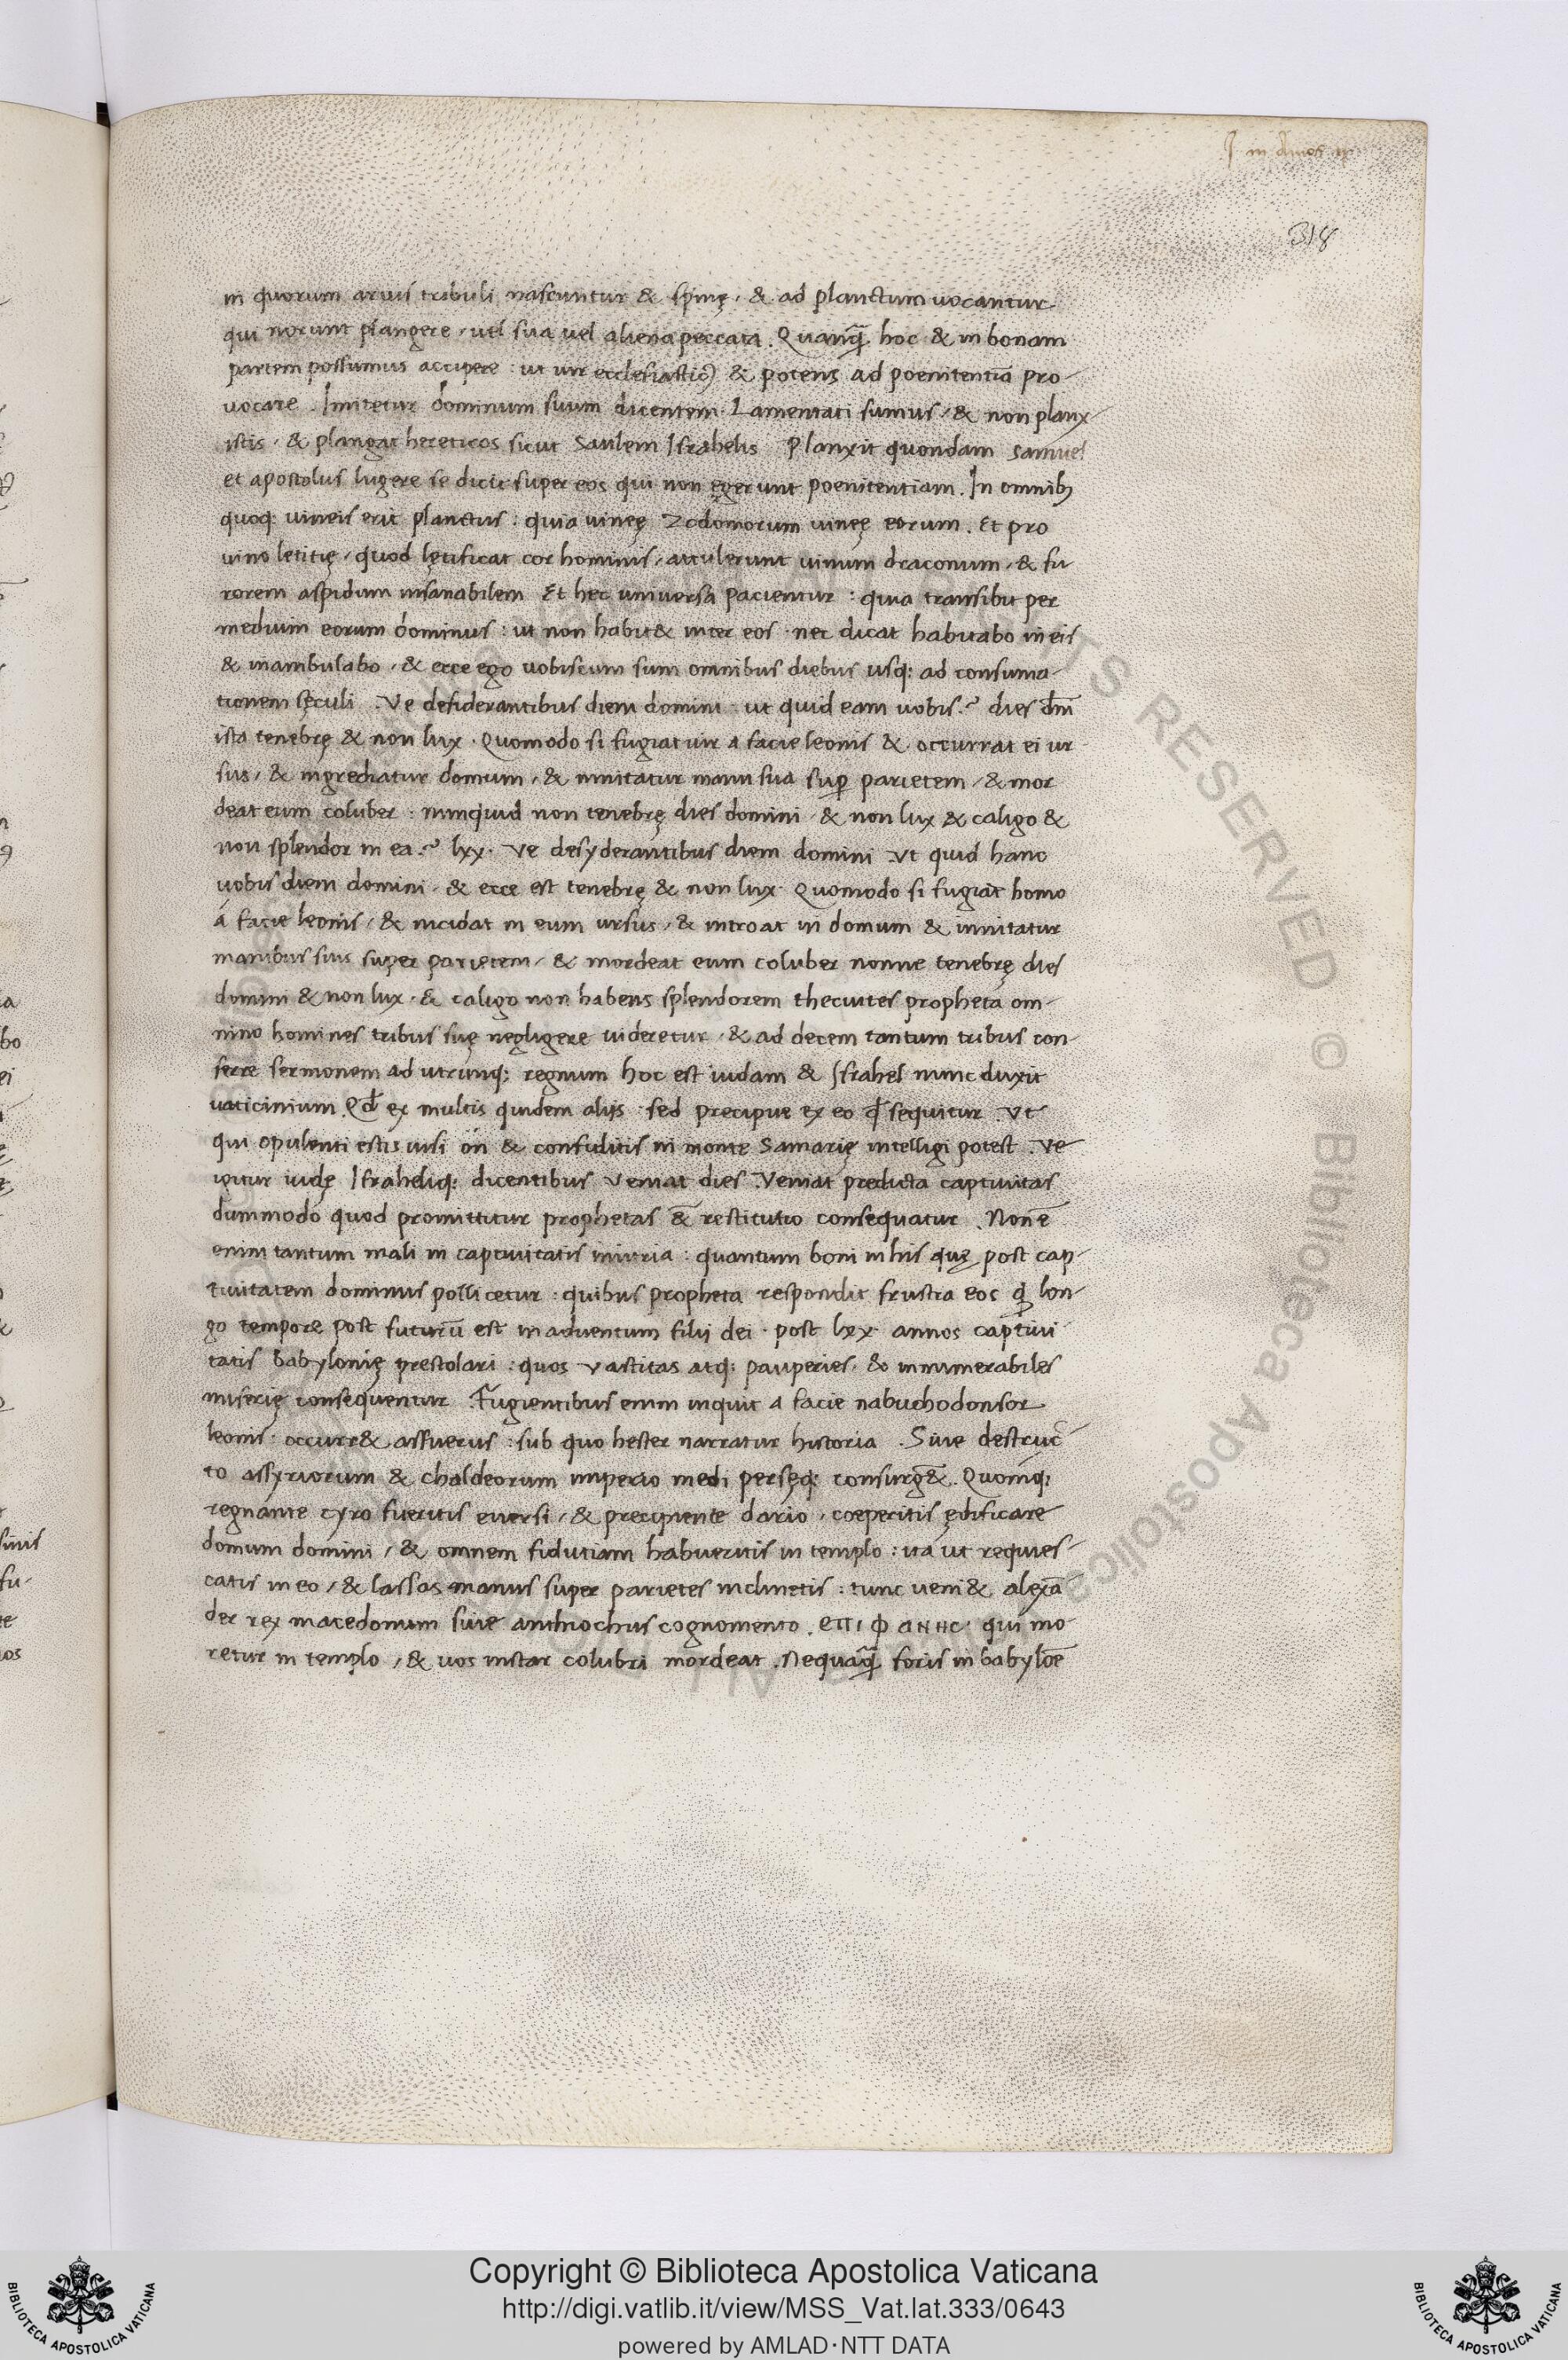 in Amos
318
in quorum aruis tribuli nascuntur & spinę, & ad planctum uocantur
qui norunt plangere, uel sua uel aliena peccata. Quanq̃ hoc & in bonam
partem possumus accipere: ut uir ecclesiastic9 & potens ad poenitentiā pro-
uocare. Imitetur dominum suum dicentem. Lamentati sumus, & non planx-
istis, & plangat hereticos sicut Saulem Israhelis Planxit quondam Samuel
et apostolus lugere se dicit super eos qui non ęgerunt poenitentiam. In omnibꝫ
quoq: uineis erit planctus: quia uineę Zodomorum uineę eorum. Et pro
uino letitię, quod lętificat cor hominis, attulerunt uinum draconum, & fu
rorem aspidum insanabilem Et hec universa pacientur: quia transibit per
medium eorum dominus: ut non habit& inter eos nec dicat habitabo in eis
& inambulabo, & ecce ego uobiscum sum omnibus diebus usq: ad consuma-
tionem sęculi. Ve desiderantibus diem domini: ut quid eam uobis? dies dn̄i
ista tenebrę & non lux. Quomodo si fugiat uir a facie leonis & occurrat ei ur-
sus, & ingrediatur domum, & innitatur manu sua sup̱ parietem, & mor
deat eum coluber: nunquid non tenebrę dies domini & non lux & caligo &
non splendor in ea? lxx. Ve desyderantibus diem domini Vt quid hanc
uobis diem domini & ecce est tenebrę & non lux. Quomodo si fugiat homo
á facie leonis, & incidat in eum ursus, & introat in domum & innitatur
manibus suis super parietem, & mordeat eum coluber nonne tenebrę dies
domini & non lux, & caligo non habens splendorem thecuites propheta om-
nino homines tribus suę negligere uideretur, & ad decem tantum tribus con-
ferre sermonem ad utrunq: regnum hoc est iudam & Israhel nunc duxit
uaticinium Qd̄ ex multis quidem alijs sed precipue ex eo qd̄ sequitur. Vt
qui opulenti estis in sion & confiditis in monte Samarię intelligi potest. Ve
igitur iudę Israheliq: dicentibus Veniat dies. Veniat predicta captiuitas
dummodo quod promittitur prophetas & restitutio consequatur. Non ē
enim tantum mali in captiuitatis iniuria: quantum boni in his quę post cap-
tiuitatem dominus pollicetur: quibus propheta respondit frustra eos qd̄ lon-
go tempore post futurū est in aduentum filij dei. post lxx. annos captiui
tatis babylonię prestolari: quos vastitas atq: pauperies, & innumerabiles
miserię consequentur. Fugientibus enim inquit a facie nabuchodonisor
leonis occurr& assuerus: sub quo hester narratur historia. Siue destruc-
to assyriorum & chaldeorum imperio medi persęq: consurg&. Quomq:
regnante cyro fueritis euersi, & precipiente dario, coeperitis ędificare
domum domini, & omnem fidutiam habueritis in templo: ita ut requies-
catis in eo, & lassas manus super parietes inclinetis: tunc ueni& alexā-
der rex macedonum siue anthiochus cognomento. eπιΦaннc qui mo-
retur in templo, & uos instar colubri mordeat. Nequaq̃ foris in babylōe
Copyright © Biblioteca Apostolica Vaticana
http://digi.vatlib.it/view/MSS_Vat.lat.333/0643
powered by AMLAD·NTT DATA